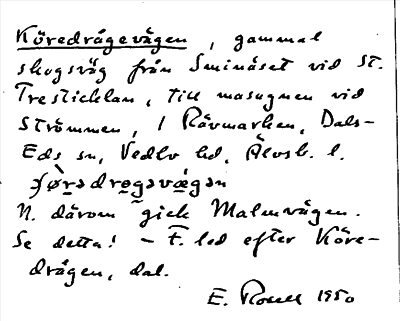 Köredrågevägen, gammal
skogsväg från Sminäset vid St.
Tresticklan, till masugnen vid
Strömmen, i Rävmarken, Dals-
Eds sn, Vedbo hd, Älvsb. l.
N. därom gick Malmvägen.
Se detta! – F. led efter Köre-
drågen, dal.
E. Rosell 1950